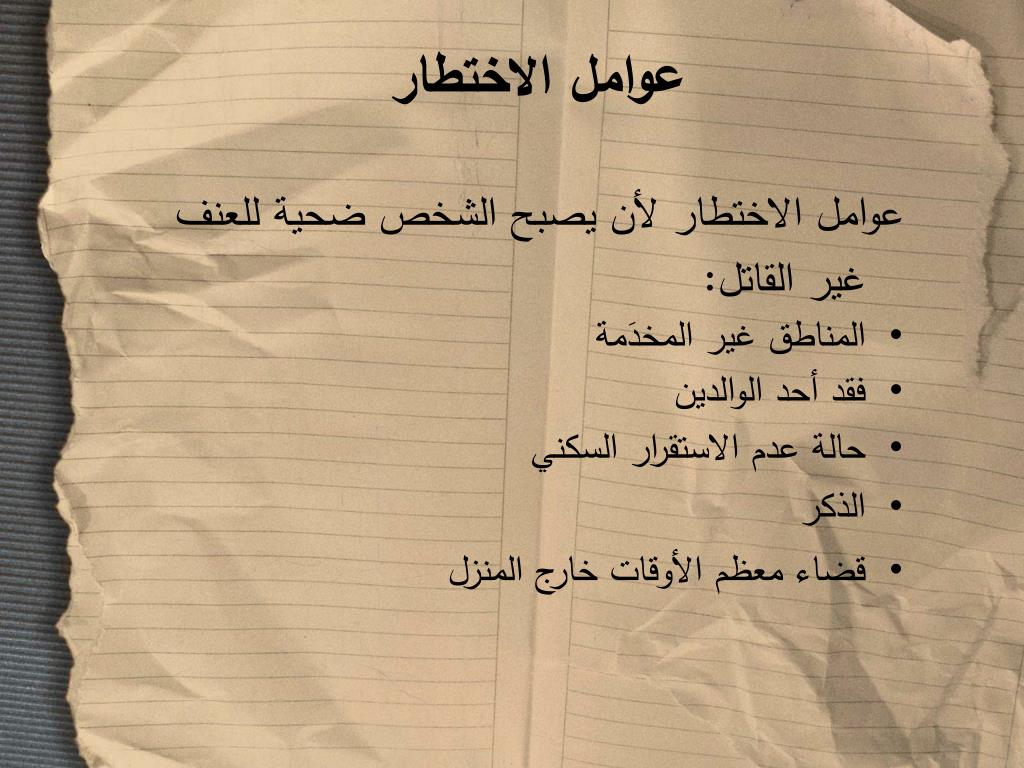 عوامل الاختطار
عوامل الاختطار لأن يصبح الشخص ضحية للعنف
غير القاتل:
• المناطق غير المخدَمة
• فقد أحد الوالدين
• حالة عدم الاستقرار السكني
• الذكر
• قضاء معظم الأوقات خارج المنزل